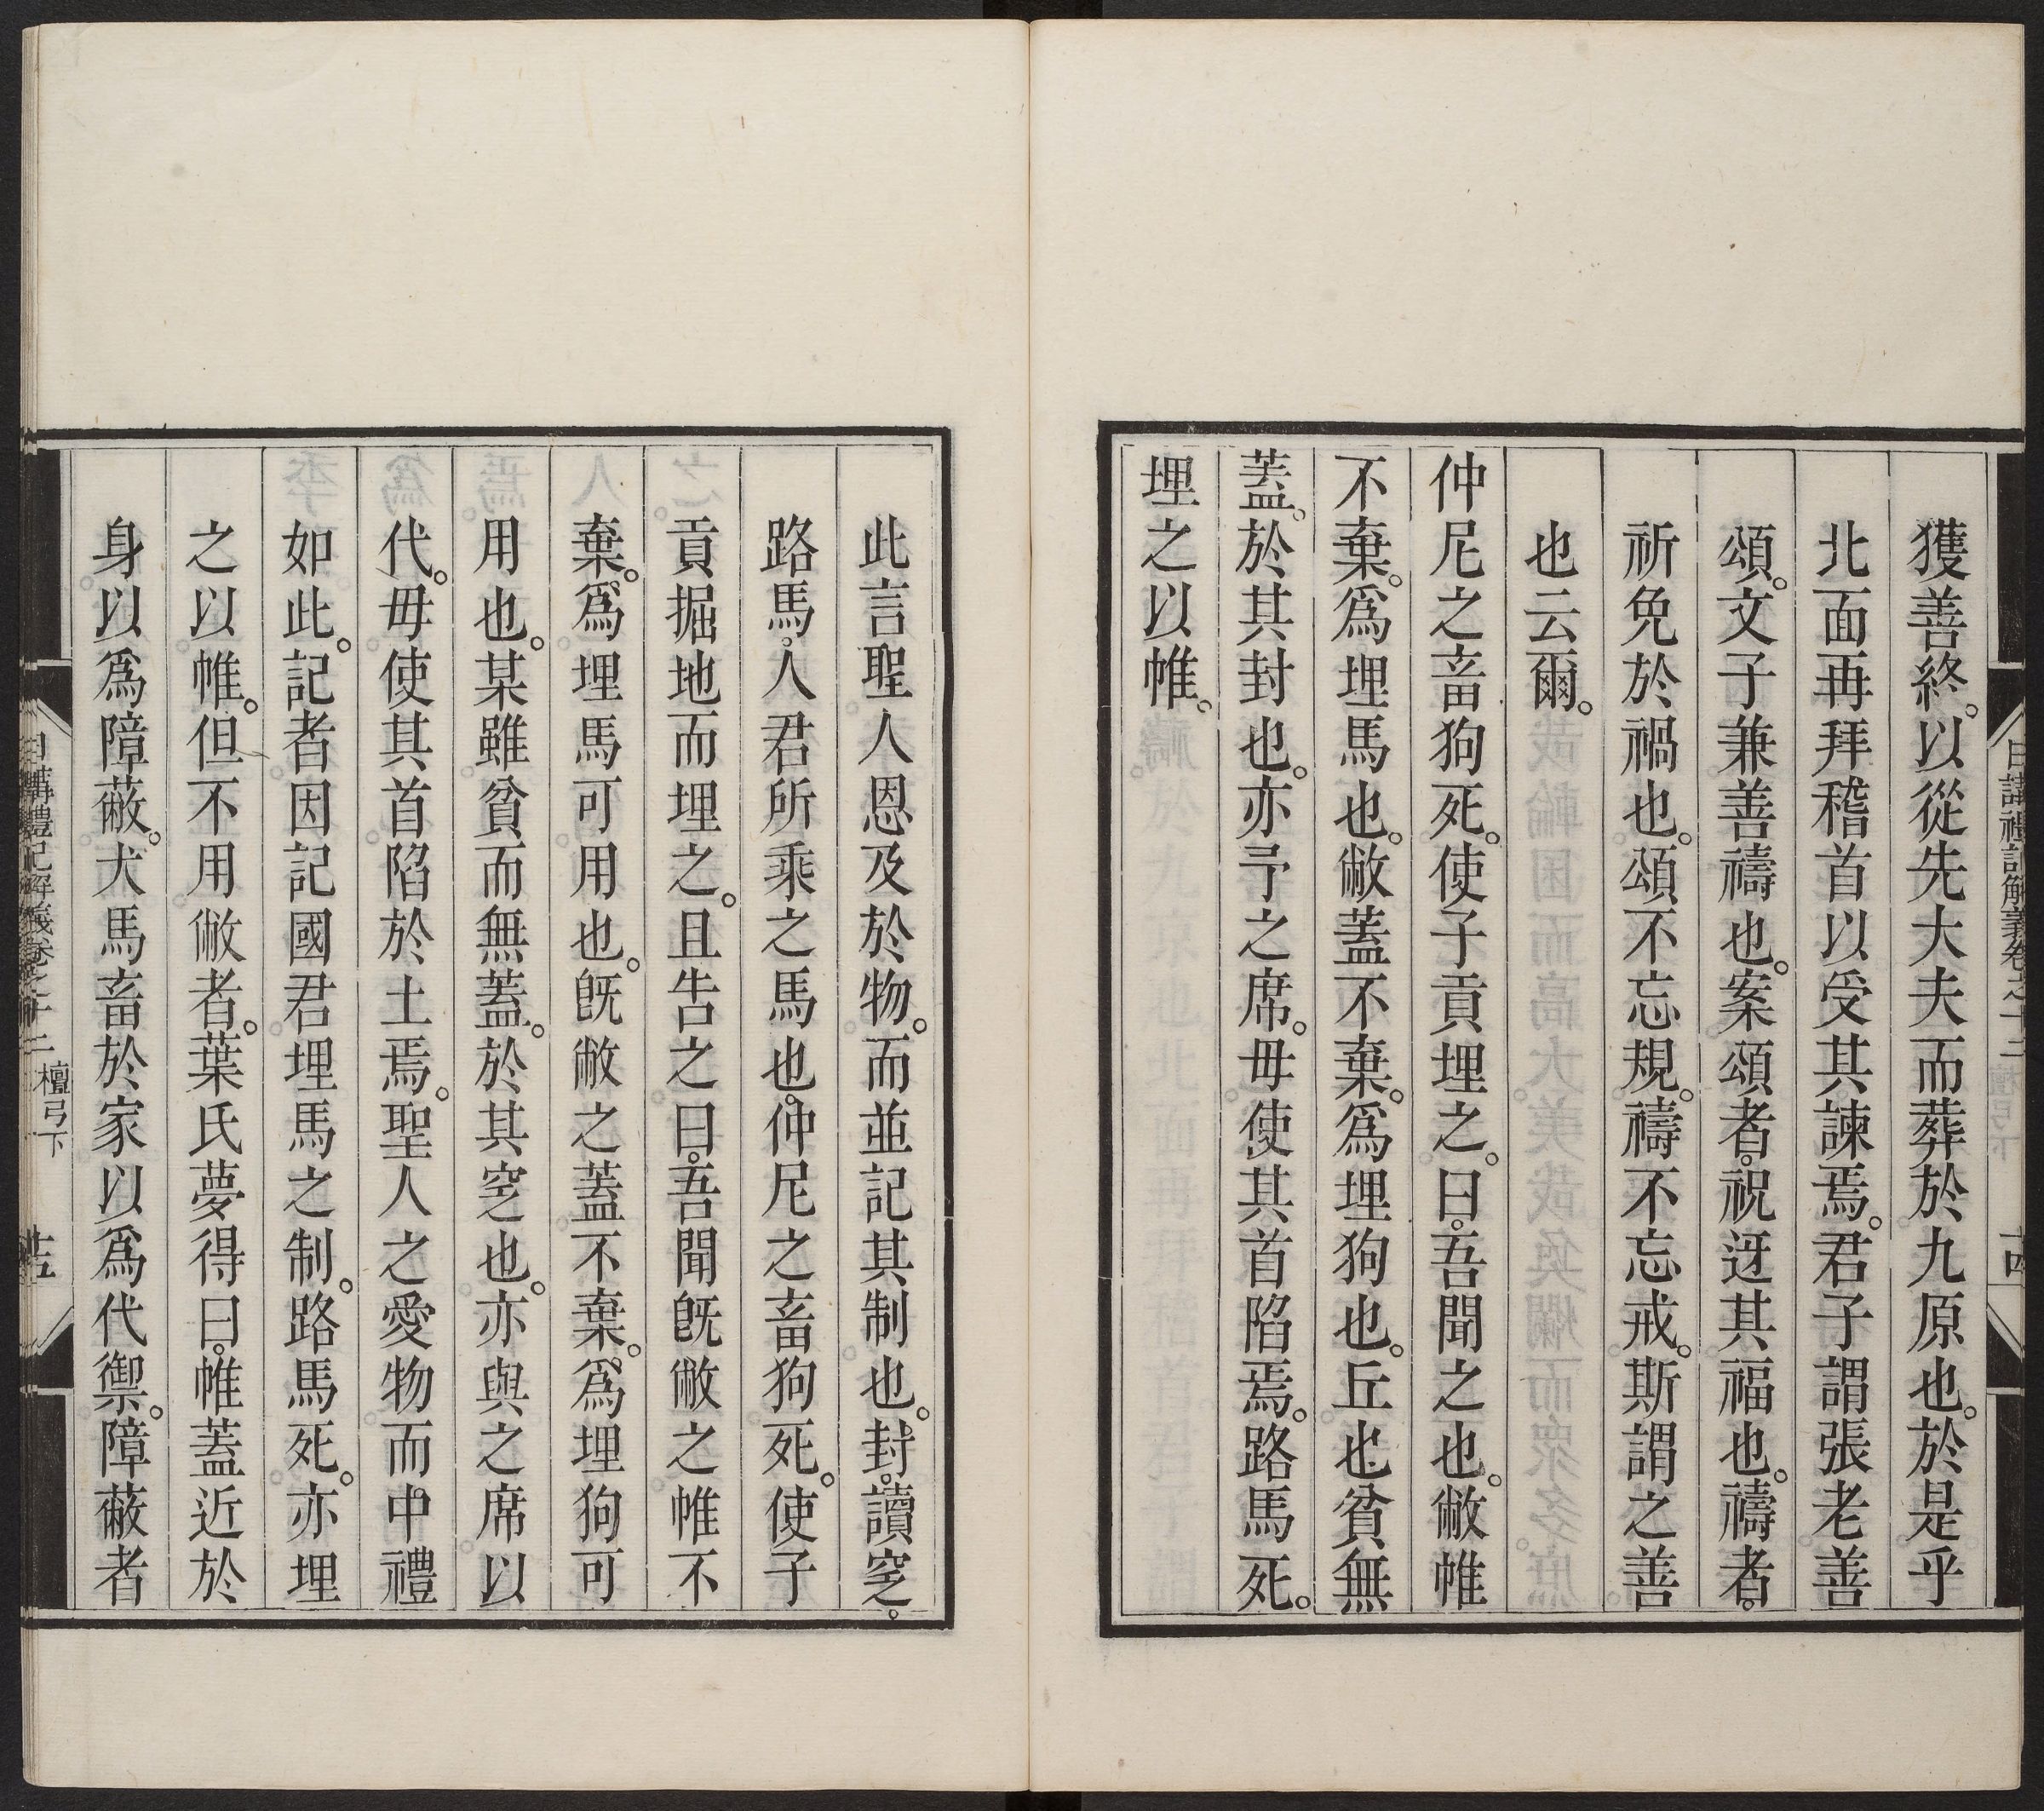 獲善終。以從先大夫而葬於九原也。於是乎
北面再拜稽首以受其諫焉。君子謂張老善
頌。文子兼善禱也。案頌者。祝迓其福也。禱者。
祈免於禍也。頌不忘規。禱不忘戒。斯謂之善
也云爾。
仲尼之畜狗死。使子貢埋之。曰。吾聞之也。敝帷
不棄。爲埋馬也。敝蓋不棄。爲埋狗也。丘也貧無
蓋。於其封也。亦予之席。毋使其首陷焉。路馬死。
埋之以帷。
日講禮記解義卷之十二
檀弓下
十四
此言聖人恩及於物。而並記其制也。封。讀窆。
路馬。人君所乘之馬也。仲尼之畜狗死。使子
貢掘地而埋之。且告之曰。吾聞旣敝之帷不
棄。爲埋馬可用也。旣敝之蓋不棄。爲埋狗可
用也。某雖貧而無蓋。於其窆也。亦與之席以
代。毋使其首陷於土焉。聖人之愛物而中禮
如此。記者因記國君埋馬之制。路馬死。亦埋
之以帷。但不用敝者。葉氏夢得曰。帷蓋近於
身以爲障蔽。犬馬畜於家以爲代禦。障蔽者
日講禮記解義卷之十二
檀弓下
十五